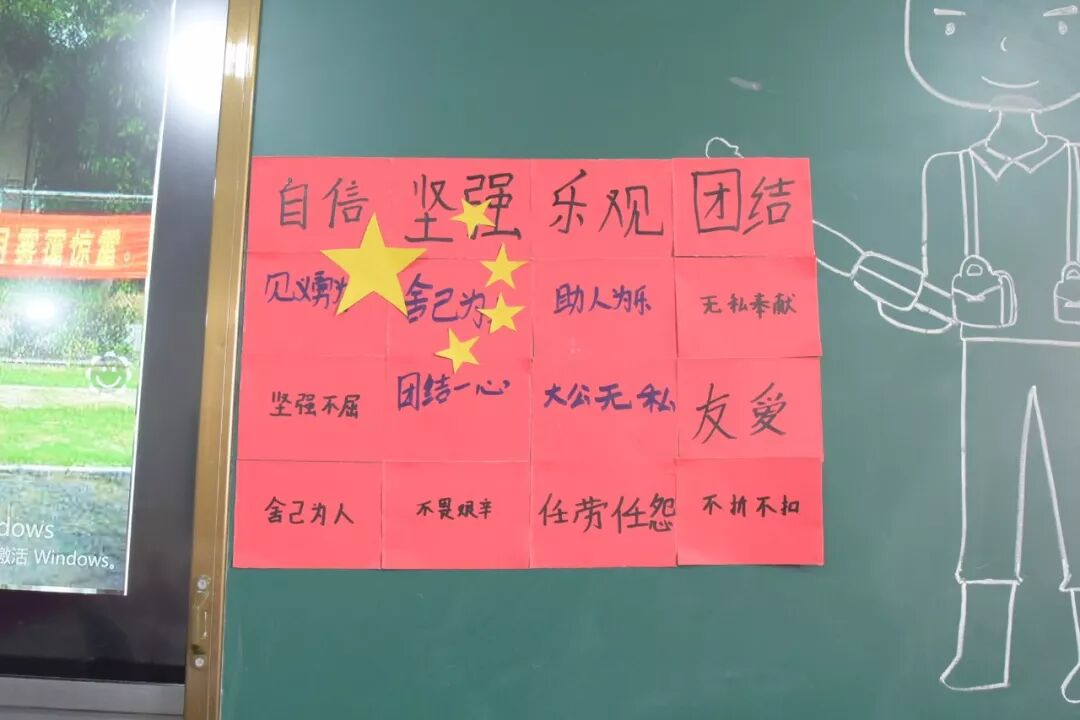 自信 坚强 乐观 团结
见义勇为 舍己为人 助人为乐 无私奉献
坚强不屈 团结一心 大公无私 友爱
舍己为人 不畏艰辛 任劳任怨 不折不扣
激活 Windows。